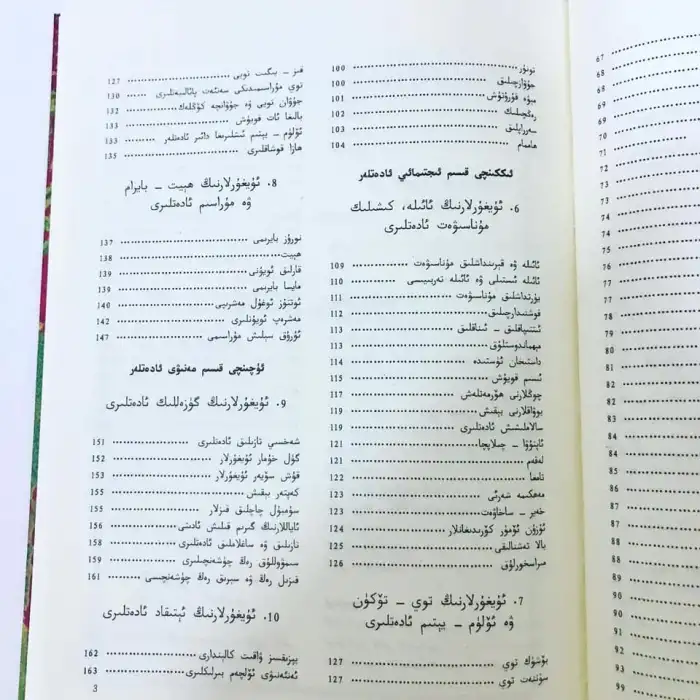 تونۇر ........ 100
جۇۋازچىلىق ........ 100
مېۋە قۇرۇتۇش ........ 101
رەڭچىلىك ........ 102
سەرراپلىق ........ 103
ھامام ........ 104
ئىككىنچى قىسىم ئىجتىمائىي ئادەتلەر
6. ئۇيغۇرلارنىڭ ئائىلە، كىشىلىك
مۇناسىۋەت ئادەتلىرى
ئائىلە ۋە قېرىنداشلىق مۇناسىۋەت ........ 109
ئائىلە ئىستىلى ۋە ئائىلە تەربىيىسى ........ 110
يۇرتداشلىق مۇناسىۋەت ........ 111
قوشنىدارچىلىق ........ 112
ئىتتىپاقلىق - ئىناقلىق ........ 113
مېھماندوستلۇق ........ 113
داستىخان ئۈستىدە ........ 114
ئىسىم قويۇش ........ 115
چوڭلارنى ھۆرمەتلەش ........ 117
بوۋاقلارنى بېقىش ........ 119
سالاملىشىش ئادەتلىرى ........ 119
ئاپتۇۋا - چىلاپچا ........ 121
لەقەم ........ 121
تامغا ........ 122
مەھكىمە شەرئى ........ 123
خەير - ساخاۋەت ........ 123
ئۇزۇن ئۆمۈر كۆرىدىغانلار ........ 124
بالا تەشنالىقى ........ 125
مىراسخورلۇق ........ 126
7. ئۇيغۇرلارنىڭ توي - تۆكۈن
ۋە ئۆلۈم - يېتىم ئادەتلىرى
بۆشۈك توي ........ 127
سۈننەت توي ........ 127
قىز - يىگىت تويى ........ 127
توي مۇراسىمىدىكى سەنئەت پائالىيەتلىرى ........ 130
جۇۋان تويى ۋە جۇۋانچە كۆڭلەك ........ 132
بالىغا ئات قويۇش ........ 133
ئۆلۈم - يېتىم ئىشلىرىغا دائىر ئادەتلەر ........ 133
ھازا قوشاقلىرى ........ 135
8. ئۇيغۇرلارنىڭ ھېيت - بايرام
ۋە مۇراسىم ئادەتلىرى
نورۇز بايرىمى ........ 137
ھېيت ........ 138
قارلىق ئويۇنى ........ 139
مايسا بايرىمى ........ 139
ئوتتۇز ئوغۇل مەشرىپى ........ 140
مەشرەپ ئويۇنلىرى ........ 142
ئۇرۇق سېلىش مۇراسىمى ........ 147
ئۈچىنچى قىسىم مەنىۋى ئادەتلەر
9. ئۇيغۇرلارنىڭ گۈزەللىك ئادەتلىرى
شەخسىي تازىلىق ئادەتلىرى ........ 151
گۈل خۇمار ئۇيغۇرلار ........ 152
قۇش سۆيەر ئۇيغۇرلار ........ 153
كەپتەر بېقىش ........ 155
سۇمبۇل چاچلىق قىزلار ........ 155
ئاياللارنىڭ گىرىم قىلىش ئادىتى ........ 156
تازىلىق ۋە ساغلاملىق ئادەتلىرى ........ 158
سىمۋوللۇق رەڭ چۈشەنچىلىرى ........ 159
قىزىل رەڭ ۋە سېرىق رەڭ چۈشەنچىسى ........ 161
10. ئۇيغۇرلارنىڭ ئېتىقاد ئادەتلىرى
يېزىقسىز ۋاقىت كالېندارى ........ 162
ئەنئەنىۋى ئۆلچەم بىرلىكلىرى ........ 163
3
67
68
68
69
70
71
74
74
75
76
76
77
79
80
81
82
82
83
84
84
85
86
87
87
88
88
89
90
90
91
92
93
94
99
99